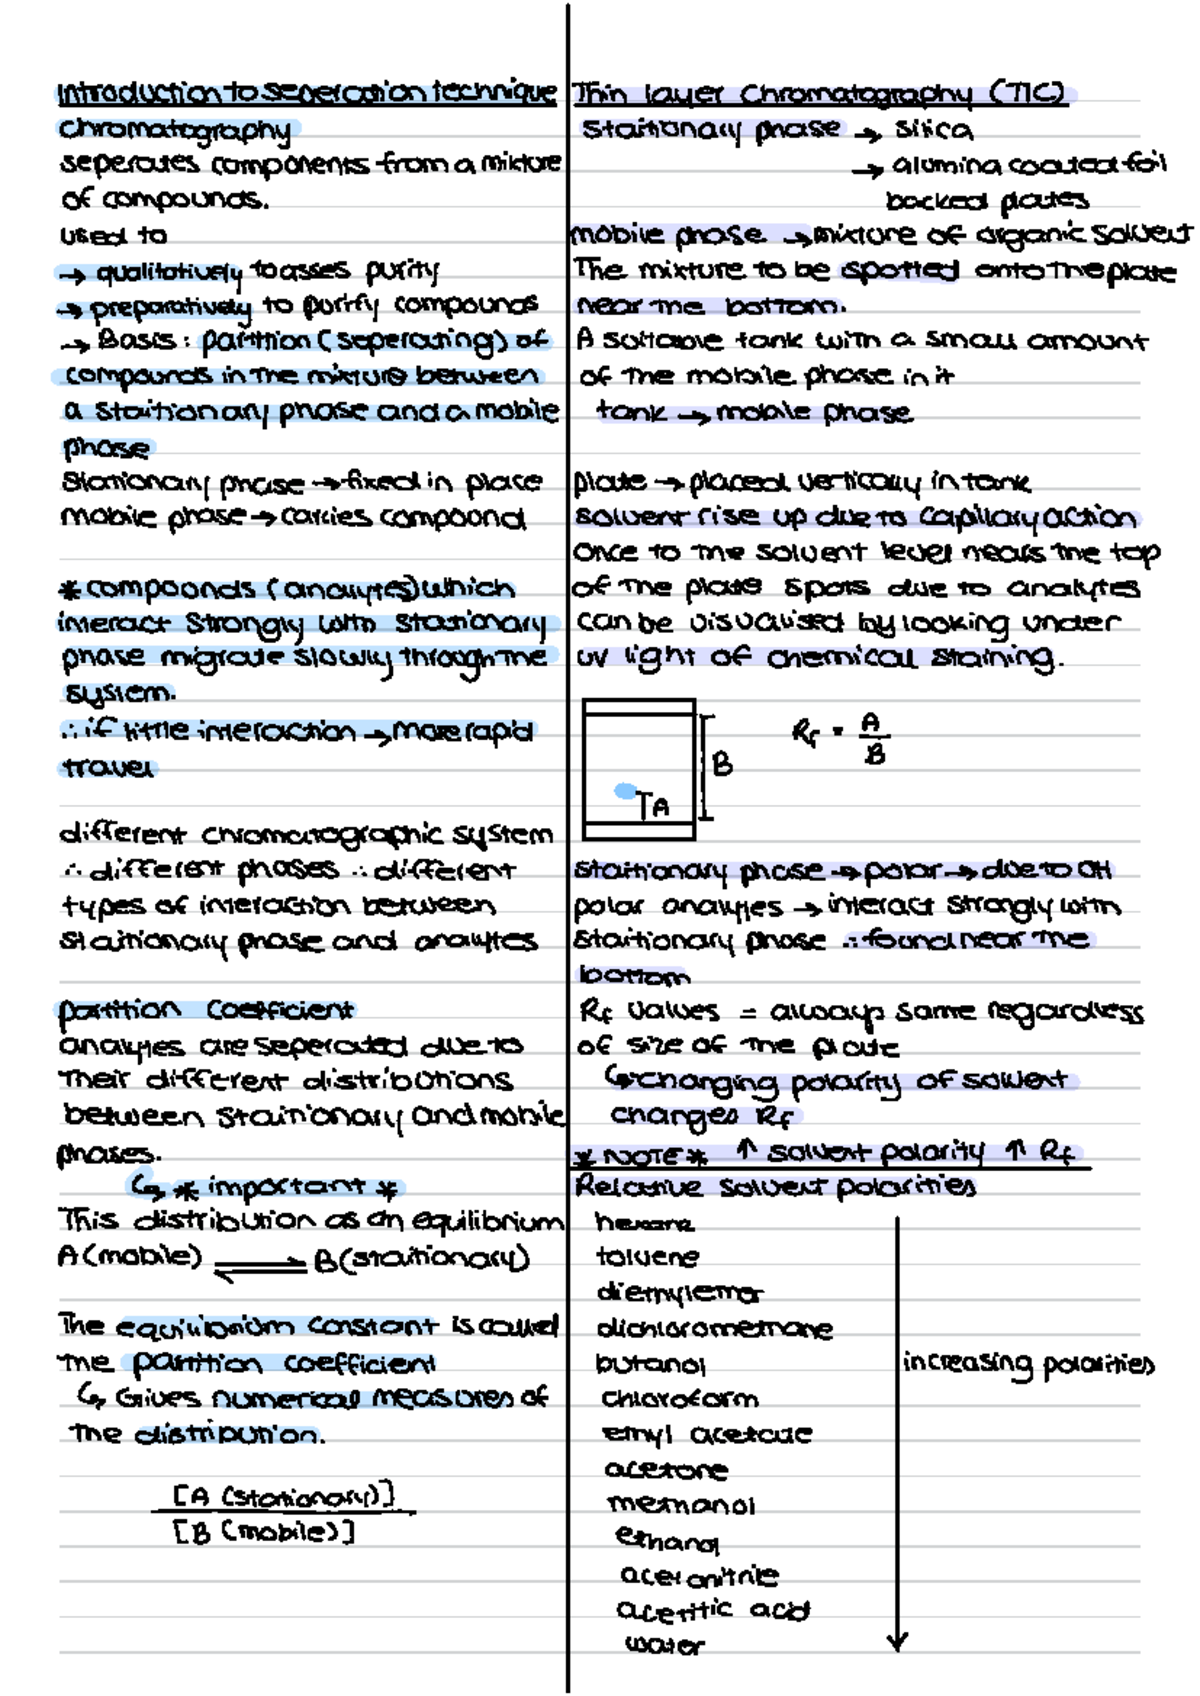 Introduction to seperation technique
Chromatography
seperates components from a mixture
of compounds.
used to
→ qualitatively to asses purity
→ preparatively to purify compounds
→ Basis : partition (seperating) of
compounds in the mixture between
a staitionary phase and a mobile
phase
Stationary phase → fixed in place
mobile phase → carries compound
* compounds (analytes) which
interact strongly with stationary
phase migrate slowly through the
system.
∴ if little interaction → more rapid
travel
different chromatographic system
∴ different phases ∴ different
types of interaction between
staitionary phase and analytes
partition coefficient
analytes are seperated due to
their different distributions
between staitionary and mobile
phases.
↳ * important *
This distribution as an equilibrium
A (mobile) ⇌ B (staitionary)
The equilibrium constant is called
the partition coefficient
↳ Gives numerical measures of
the distribution.
[A (stationary)]
[B (mobile)]
Thin layer Chromatography (TLC)
Staitionary phase → silica
→ alumina coated foil
backed plates
mobile phase → mixture of organic solvent
The mixture to be spotted onto the plate
near the bottom.
A suitable tank with a small amount
of the mobile phase in it
tank → mobile phase
plate → placed vertically in tank
solvent rise up due to capillary action
Once to the solvent level nears the top
of the plate spots due to analytes
can be visualised by looking under
uv light of chemical staining.
B
A
Rf = A
B
Staitionary phase → polar → due to OH
polar analytes → interact strongly with
staitionary phase ∴ found near the
bottom
Rf values = always same regardless
of size of the plate
↳ changing polarity of solvent
changes Rf
* NOTE * ↑ solvent polarity ↑ Rf
Relative solvent polarities
hexane
toluene
diethylether
dichloromethane
butanol
increasing polarities
chloroform
ethyl acetate
acetone
methanol
ethanol
acetonitrile
acetitic acid
water